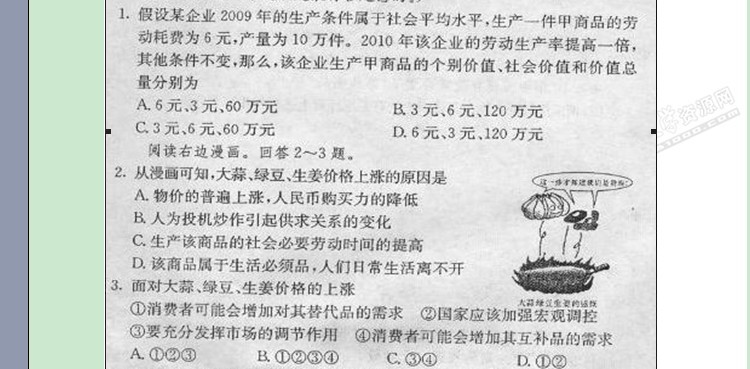 1. 假设某企业 2009 年的生产条件属于社会平均水平,生产一件甲商品的劳
动耗费为 6 元,产量为 10 万件。2010 年该企业的劳动生产率提高一倍,
其他条件不变,那么,该企业生产甲商品的个别价值、社会价值和价值总
量分别为
A. 6 元、3 元、60 万元 B. 3 元、6 元、120 万元
C. 3 元、6 元、60 万元 D. 6 元、3 元、120 万元
阅读右边漫画。回答 2～3 题。
2. 从漫画可知,大蒜、绿豆、生姜价格上涨的原因是
A. 物价的普遍上涨,人民币购买力的降低
B. 人为投机炒作引起供求关系的变化
C. 生产该商品的社会必要劳动时间的提高
D. 该商品属于生活必须品,人们日常生活离不开
大蒜绿豆生姜的
3. 面对大蒜、绿豆、生姜价格的上涨
①消费者可能会增加对其替代品的需求 ②国家应该加强宏观调控
③要充分发挥市场的调节作用 ④消费者可能会增加其互补品的需求
A. ①②③ B. ①②③④ C. ③④ D. ①②
资源网